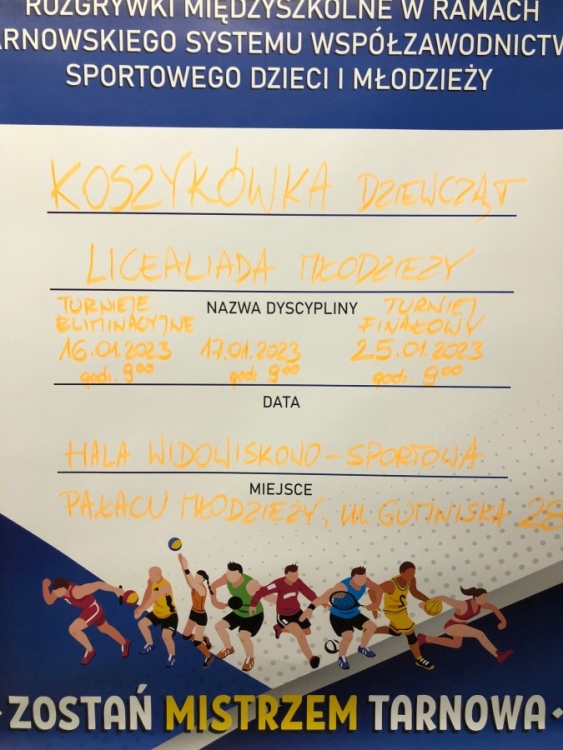 ROZGRYWKI MIĘDZYSZKOLNE W RAMACH
ARNOWSKIEGO SYSTEMU WSPÓŁZAWODNICTW
SPORTOWEGO DZIECI I MŁODZIEŻY
KOSZYKÓWKA DZIEWCZĄT
LICEALIADA MŁODZIEŻY
NAZWA DYSCYPLINY
TURNIEJE TURNIEJ
ELIMINACYJNE FINAŁOWY
16.01.2023 17.01.2023 25.01.2023
godz. 9⁰⁰ godz. 9⁰⁰ godz. 9⁰⁰
DATA
HALA WIDOWISKOWO-SPORTOWA
MIEJSCE
PAŁACU MŁODZIEŻY, ul. GUMNISKA 28
·ZOSTAŃ MISTRZEM TARNOWA·